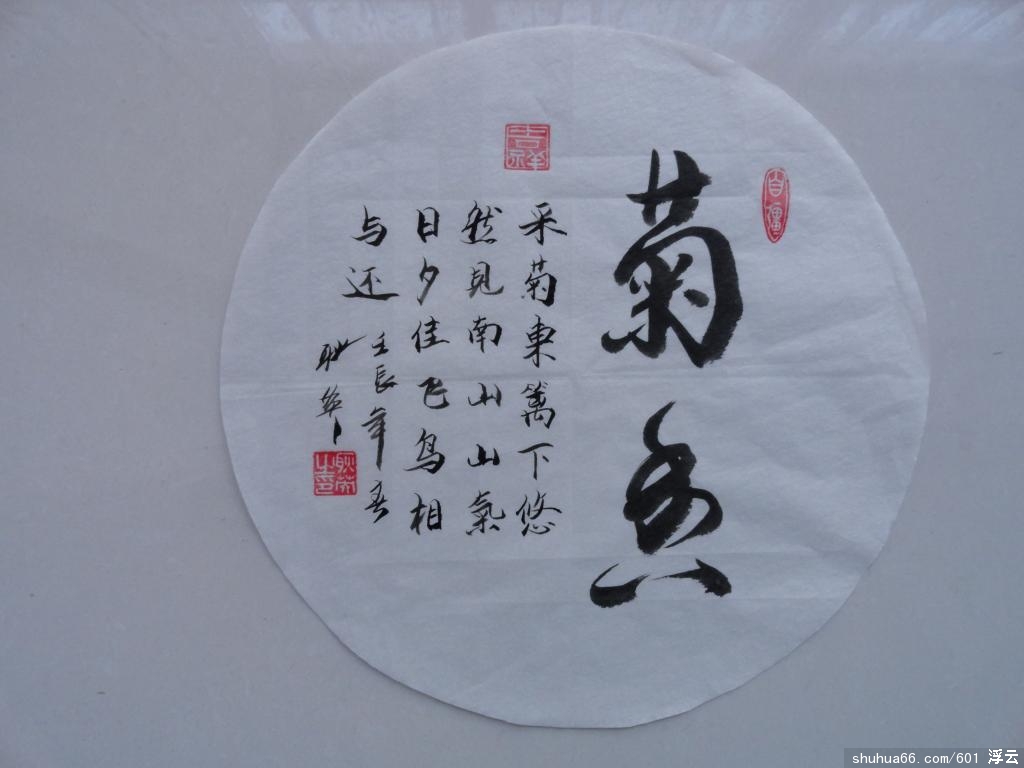 菊
吉祥
采菊東篱下悠
然見南山山氣
日夕佳飞鸟相
与还
壬辰年春
耿
shuhua66.com/601 浮云